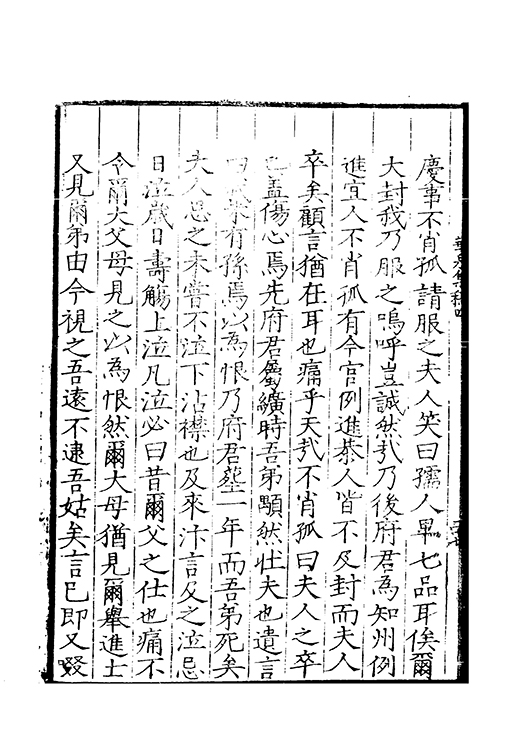 慶事不肖孤請服之夫人笑曰孺人畢七品耳俟爾
大封我乃服之嗚呼豈誠然哉乃後府君為知州例
進宜人不肖孤有今官例進恭人皆不及封而夫人
卒矣顧言猶在耳也痛乎天哉不肖孤曰夫人之卒
也盖傷心焉先府君屬纊時吾弟顒然壯夫也遺言
有孫焉以為恨乃府君塟一年而吾弟死矣
夫人忌之未嘗不泣下沾襟也及來汴言及之泣忌
日泣歲日壽觴上泣凡泣必曰昔爾父之仕也痛不
令爾大父母見之以為恨然爾大母猶見爾舉進士
又見爾弟由今視之吾遠不逮吾姑矣言已即又啜